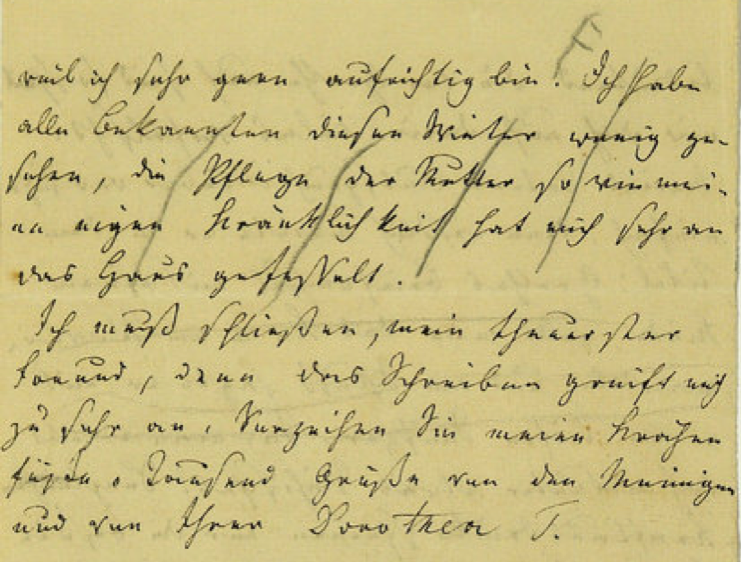 weil ich sehr gern aufrichtig bin. Ich habe
alle Bekannten diesen Winter wenig ge-
sehen, die Pflege der Mutter so wie mei-
ne eigen Kränklichkeit hat mich sehr an
das Haus gefesselt.
Ich muß schließen, mein theuerster
Freund, denn das Schreiben greift mich
zu sehr an. Verzeihen Sie meine Krähen
füße. Tausend Grüße von den Meinigen
und von Ihrer Dorothea T.